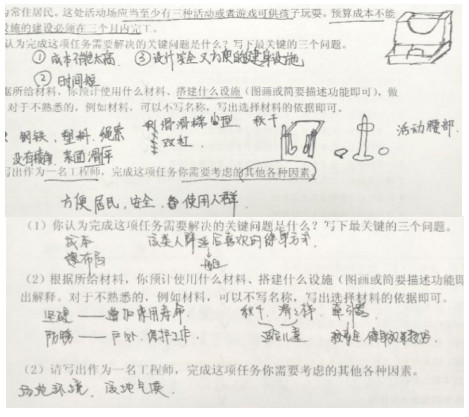 常住居民。这处活动场应当至少有三种活动或者游戏可供孩子玩耍。预算成本不能
设施的建设必须在三个月内完工。
认为完成这项任务需要解决的关键问题是什么？写下最关键的三个问题。
①成本不能太高 ③设计安全又方便的健身设施
②时间短
据所给材料，你预计使用什么材料、搭建什么设施（图画或简要描述功能即可），做
对于不熟悉的，例如材料，可以不写名称，写出选择材料的依据即可。
钢铁，塑料，绳索 滑滑梯 秋千
双杠 活动腰部
没有棱角，表面滑平
写出作为一名工程师，完成这项任务你需要考虑的其他各种因素。
方便居民，安全，使用人群
（1）你认为完成这项任务需要解决的关键问题是什么？写下最关键的三个问题。
成本 该类人群 喜欢的健身方式
（2）根据所给材料，你预计使用什么材料、搭建什么设施（图画或简要描述功能即
出解释。对于不熟悉的，例如材料，可以不写名称，写出选择材料的依据即可。
坚硬——增加使用寿命 秋千，滑滑梯
防腐——户外，保护工作 适合儿童
（2）请写出作为一名工程师，完成这项任务你需要考虑的其他各种因素。
场地环境，该地气候